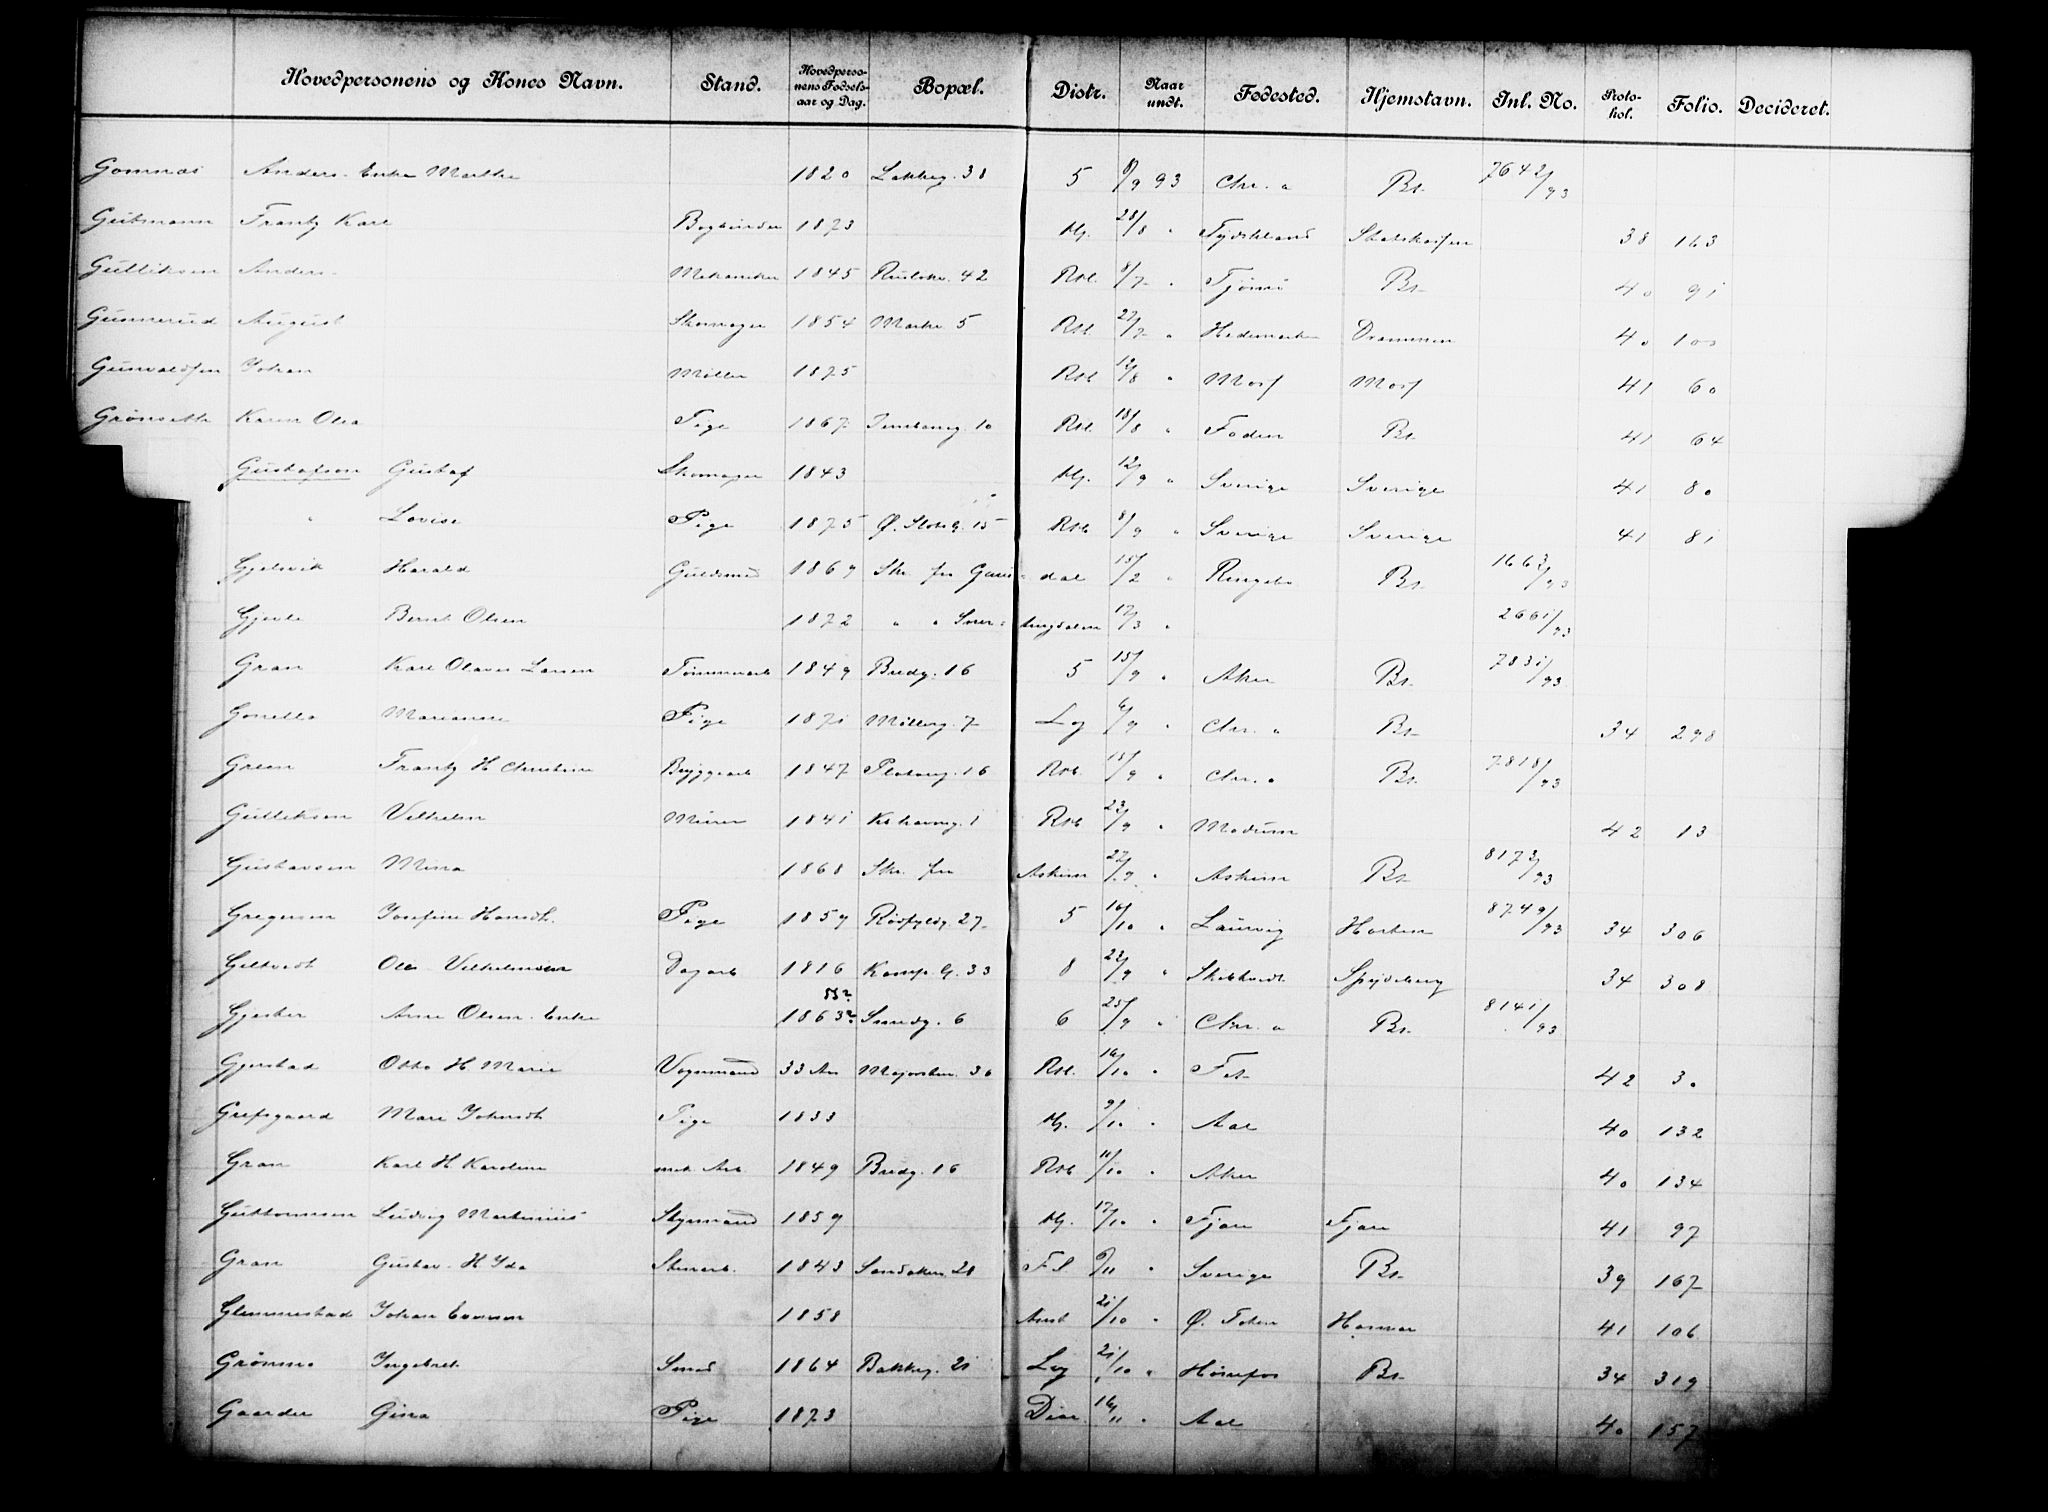 Hovedpersonens og Kones Navn. Stand. Hovedpersonens Fødselsaar og Dag. Bopæl. Distr. Naar undt. Fødested. Hjemstavn. Inl. No. Protokol. Folio. Decideret.
Gomnæs Anders Enke Marthe 1820 Lakkeg. 38 5 8/9 93 Chr.a Bt. 7642/93
Gutsmann Frantz Karl Bogbinder 1873 Hj. 28/8 " Tydskland 38 163
Gulliksen Anders Mekaniker 1845 42 Rtl. 8/7 " Tjømø Bt. 40 91
Gunnerud August Skomager 1854 Markv. 5 Rtl. 27/7 " Hedemarken Drammen 40 100
Gunvaldsen Johan Møller 1875 Rtl. 12/8 " Moss Moss 41 60
Grønseth Karen Olea Pige 1867 10 Rtl. 18/8 " Bt. 41 64
Gustafson Gustaf Skomager 1843 Hj. 12/9 " Sverige Sverige 41 80
" Lovise Pige 1875 Ø. Slotsg. 15 Rtl. 8/9 " Sverige Sverige 41 81
Gjelsvik Harald Guldsmed 1869 Skr. fra Gausdal 15/2 " Ringebu Bt. 1663/93
Bernt Olsen 1872 " " 17/3 " 2661/93
Gran Karl Olaves Larsen Tømmerarb 1849 Bredg. 16 5 15/9 " Aker Bt. 7831/93
Gonella Mariane Pige 1871 Møllerg. 7 Lg 6/9 " Chr.a Bt. 34 298
Green Frantz H Christine Bryggearb 1847 Platoug. 16 Rtl. 15/9 " Chr.a Bt. 7818/93
Gulliksen Vilhelm Murer 1841 1 Rtl. 23/9 " Modum 42 13
Gustavsen Mina 1868 Skr. fra Askim 27/9 " Askim Bt. 8173/93
Gregersen Josefine Hansdt. Pige 1859 Rødfyldg. 27 5 16/10 " Laurvig Horten 8749/93 34 306
Ole Vilhelmsen Dagarb 1816 Kamp. G. 33 8 22/9 " Skiptvedt Spydeberg 34 308
Arne Olsen Enke 1863? 55? Smedg. 6 6 25/9 " Chr.a Bt. 8141/93
Gjerstad Otto H Marie Vognmand 33 Aar Majorstuv. 30 Rtl. 16/10 " Fet 42 30
Grefsgaard Mari Johnsdt. Pige 1833 Hj. 9/10 " Aal 40 132
Gran Karl H Karoline mek Arb 1849 Bredg. 16 Rtl. 11/10 " Aker 40 134
Guttormsen Ludvig Martinius Styrmand 1859 Hj. 17/10 " 41 97
Gran Gustav H Ida Stenarb. 1843 Sandakerv. 28 F.S. 9/11 " Sverige Bt. 39 167
Glemmestad Johan Evensen 1858 Amt 21/10 " Ø. Toten Hamar 41 106
Grønmo Ingebret Smed 1864 Bakkeg. 21 Lg 21/10 " Hønefos Bt. 34 319
Gaarder Gina Pige 1873 16/11 " Aal 40 157